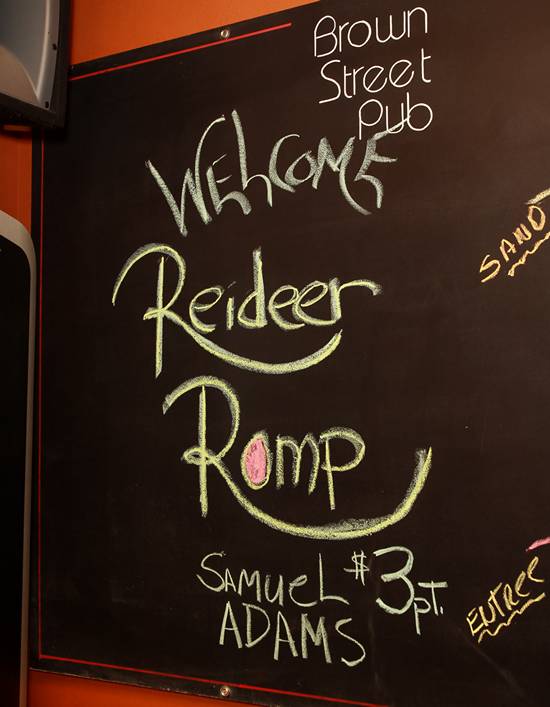 Brown
Street
Pub
WELCOME
Reideer
Romp
SAMUEL $3pt.
ADAMS
SAND
ENTREE